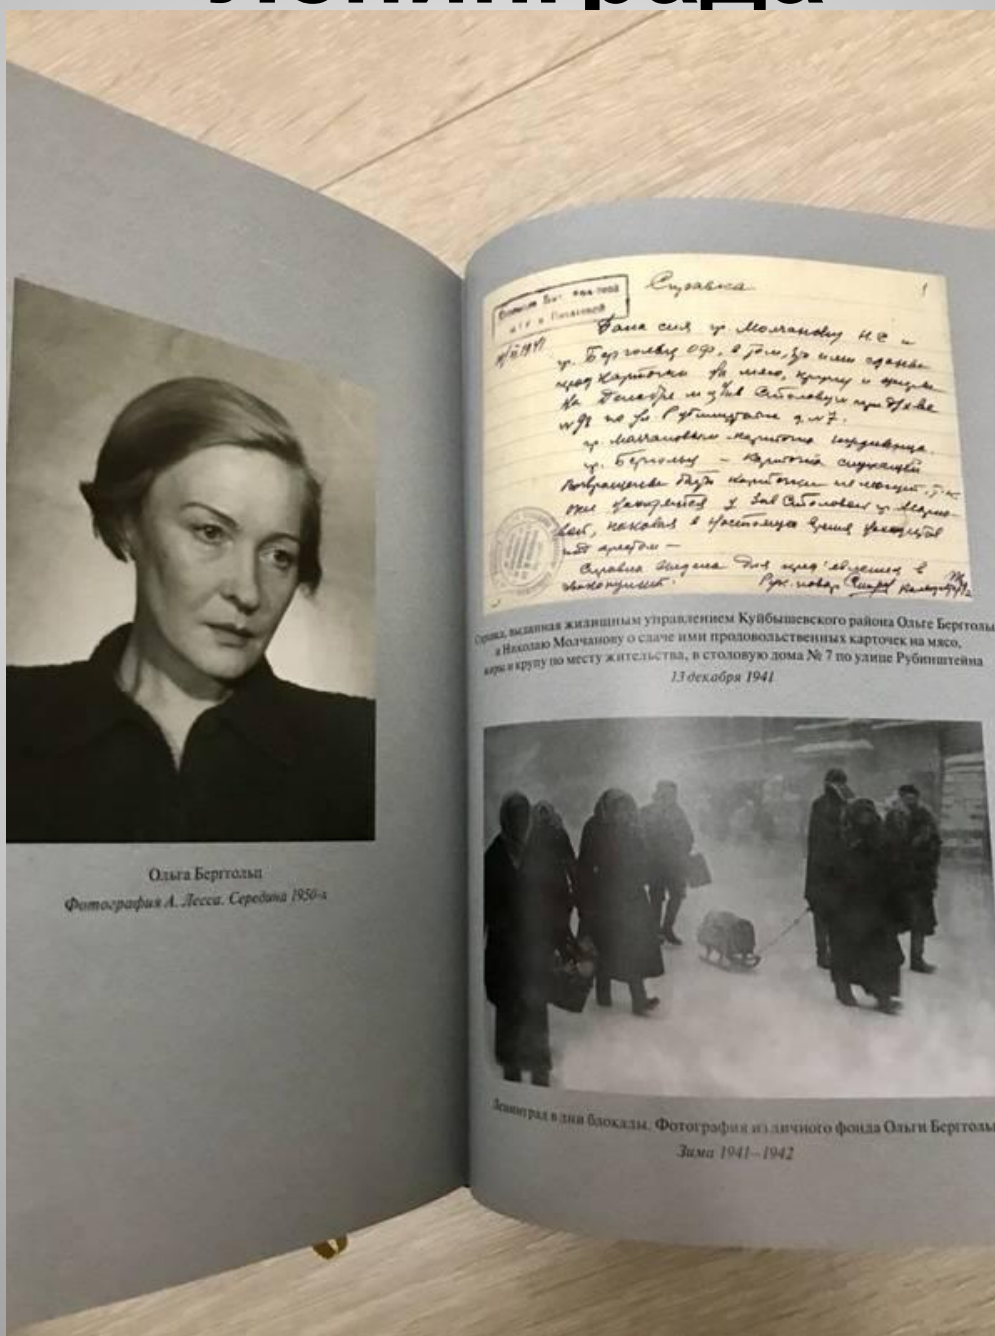 Ленинграда
Ольга Берггольц
Фотография А. Лесса. Середина 1950-х
Справка
1
Дана сия гр. Молчанову Н С и
гр. Бергольц ОФ, в том, что ими сданы
прод карточки на мясо, крупу и
На Декабрь м-ц Зав Столовую при
по ул. Рубинштейна д. №7.
гр. Молчановым карточка иждивенца.
гр. Бергольц – карточка служащей
Возвращены быть карточки не могут, т-к
они находятся у Зав Столовой гр.
в настоящее время находится
под арестом —
Справка выдана для пред'явления в
Справка, выданная жилищным управлением Куйбышевского района Ольге Берггольц
и Николаю Молчанову о сдаче ими продовольственных карточек на мясо,
жиры и крупу по месту жительства, в столовую дома № 7 по улице Рубинштейна
13 декабря 1941
Ленинград в дни блокады. Фотография из личного фонда Ольги Берггольц
Зима 1941–1942